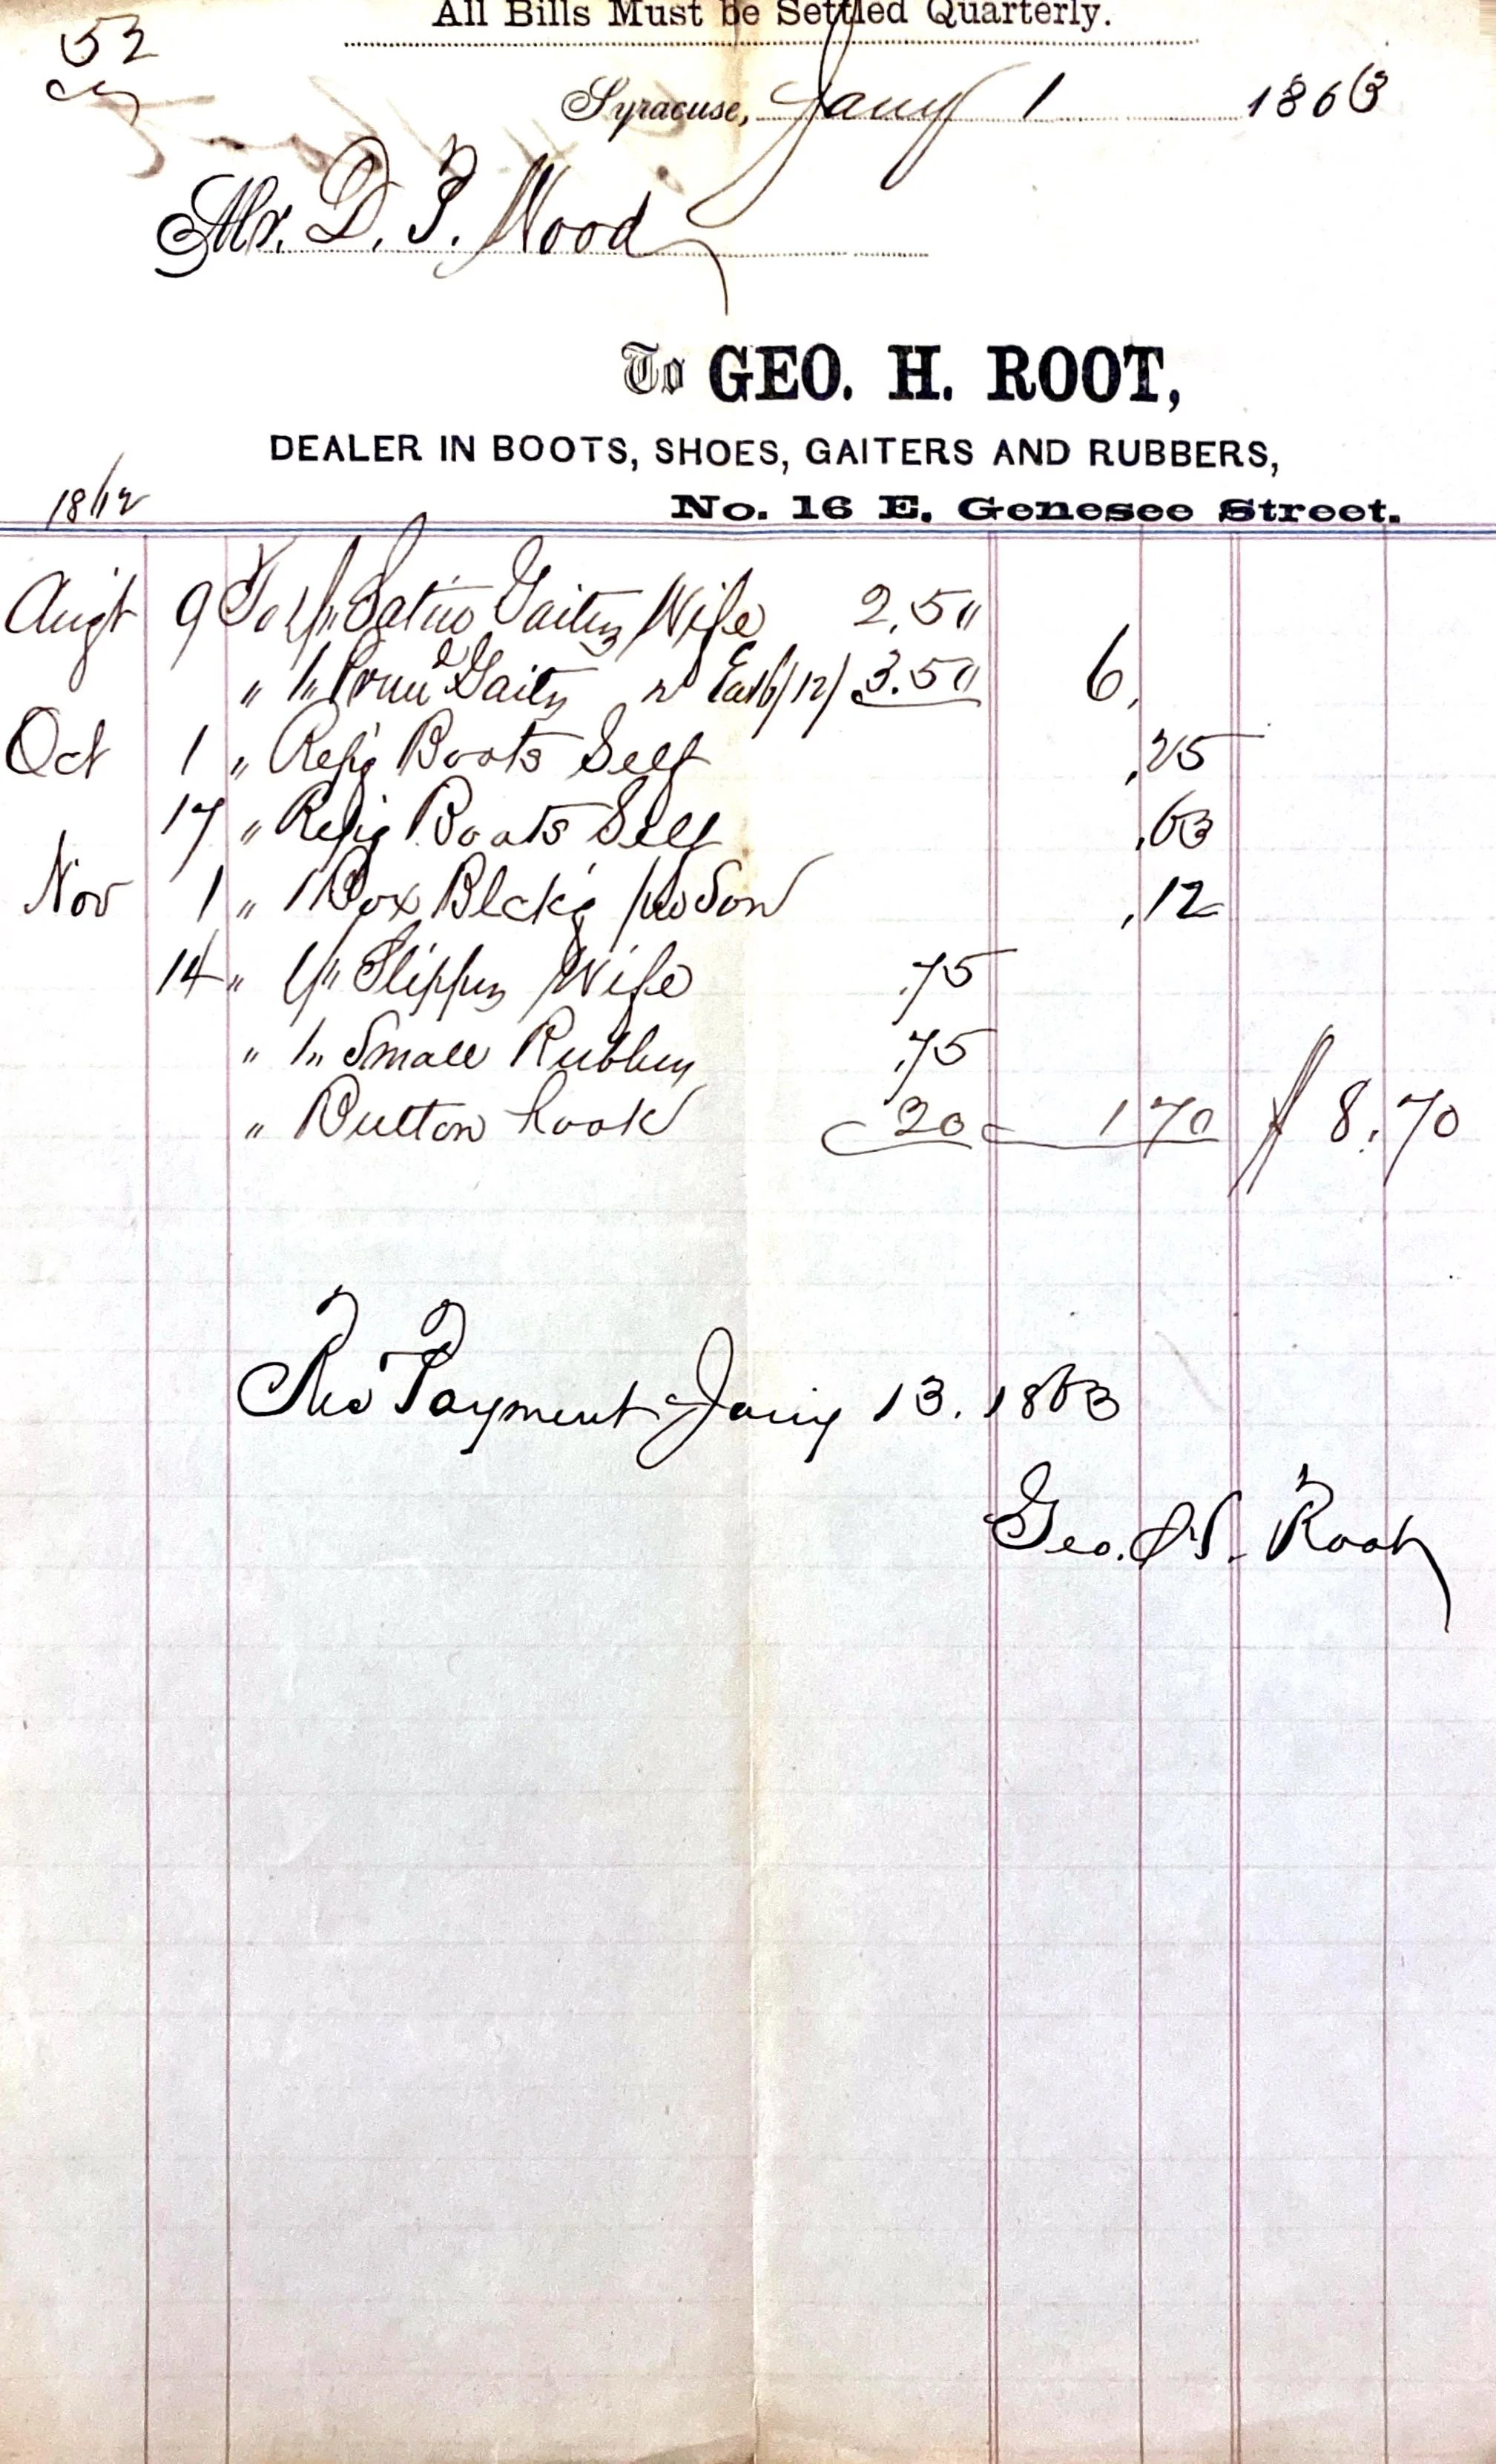 All Bills Must be Settled Quarterly.
52
Syracuse, Jany 1 1863
Mr. D. P. Wood
To GEO. H. ROOT,
DEALER IN BOOTS, SHOES, GAITERS AND RUBBERS,
No. 16 E. Genesee Street.
1862
Augt 9 To 1 pr Gaiters Wife 2.50
" 1 " Gaits 3.50 6,
Oct 1 " Rep'g Boots Self .25
17 " Rep'g Boots Self .63
Nov 1 " 1 Box Blck'g pr Son .12
14 " 1 pr Slippers Wife .75
" 1 " Small Rubbers .75
" Button hook 20 1 70 $ 8.70
Rec Payment Jany 13. 1863
Geo. H. Root